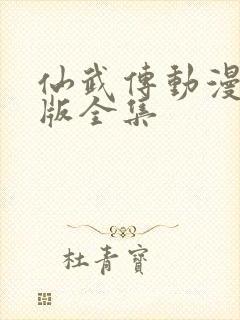 仙武傳動漫
版全集
杜青寶